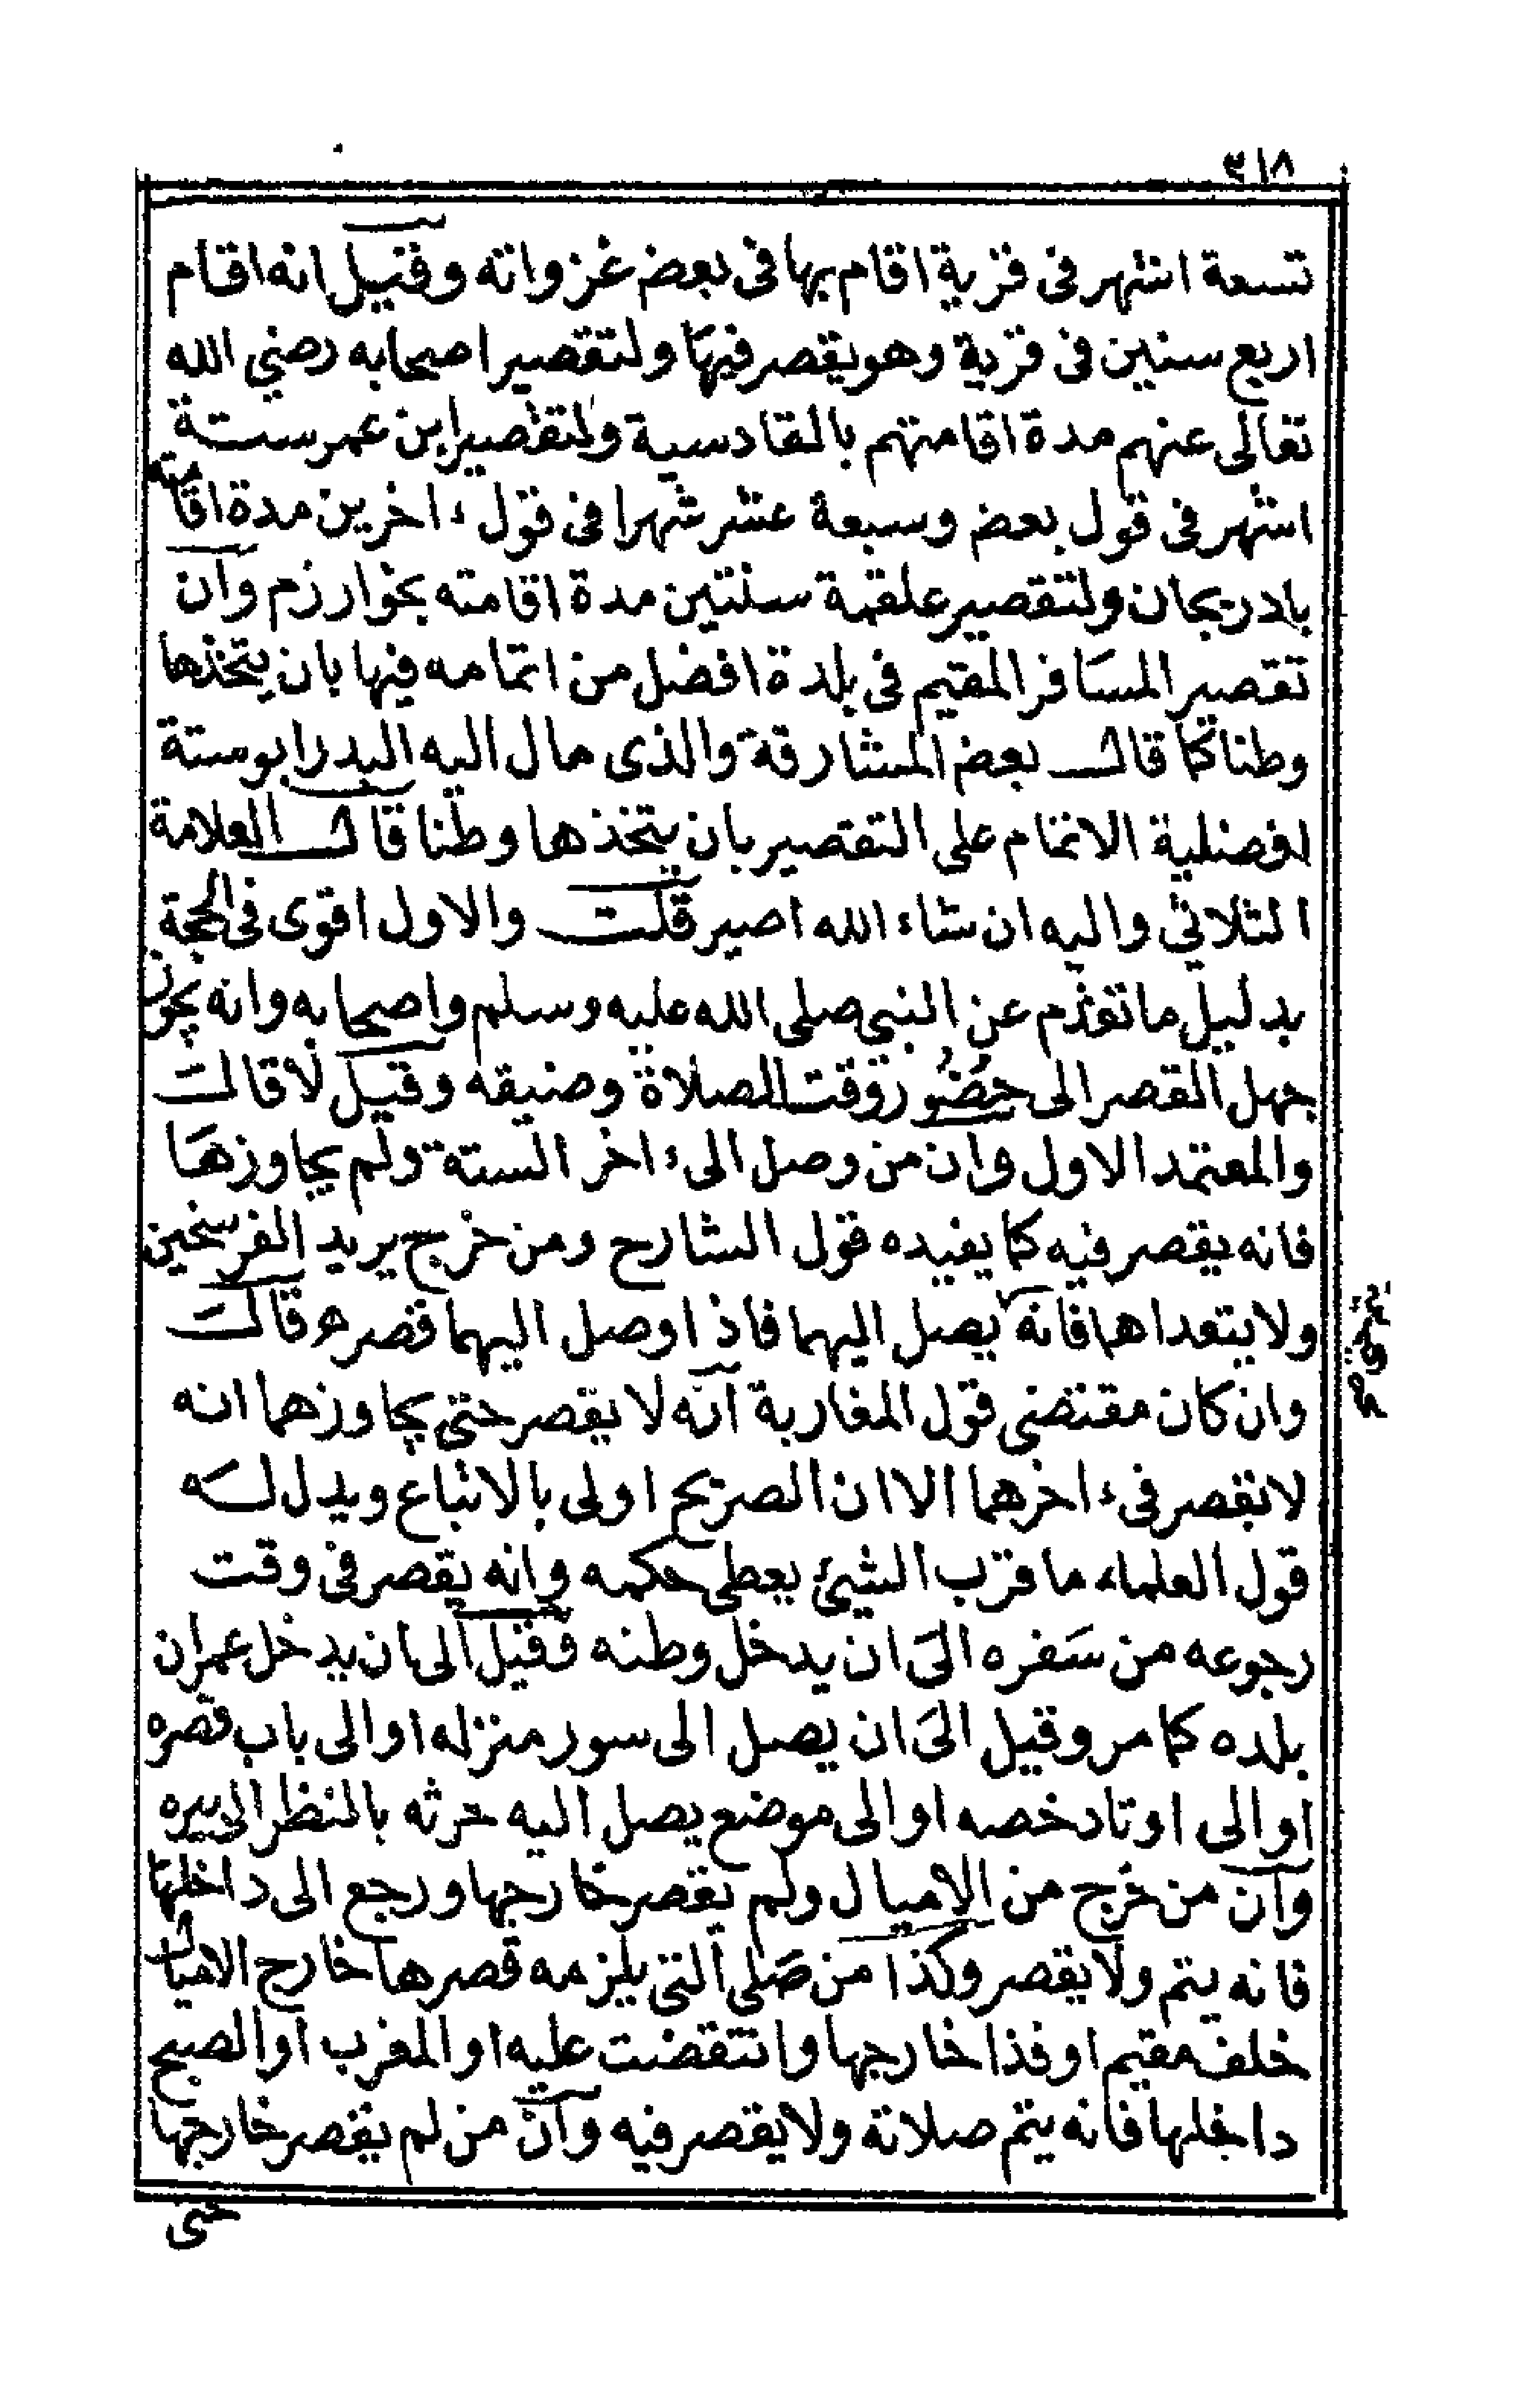 ٣١٨
تسعة اشهر فى قرية اقام بها فى بعض غزواته وقيل انه اقام
اربع سنين فى قرية وهو يقصر فيها ولتقصير اصحابه رضي الله
تعالى عنهم مدة اقامتهم بالقادسية ولتقصير ابن عمر ستة
اشهر فى قول بعض وسبعة عشر شهرا فى قول ءاخرين مدة اقامته
باذربيجان ولتقصير علقمة سنتين مدة اقامته بخوارزم وان
تقصير المسافر المقيم فى بلدة افضل من اتمامه فيها بان يتخذها
وطنا كما قال بعض المشارقة والذى مال اليه البدر ابو ستة
افضلية الاتمام على التقصير بان يتخذها وطنا قال العلامة
الثلاثي واليه ان شاء الله اصير قلت والاول اقوى فى الحجة
بدليل ما تقدم عن النبي صلى الله عليه وسلم واصحابه وانه يجوز
جهل القصر الى حضور وقت الصلاة وضيقه وقيل لا قالت
والمعتمد الاول وان من وصل الى ءاخر الستة ولم يجاوزها
فانه يقصر فيه كما يفيده قول الشارح ومن خرج يريد الفرسخين
ولا يتعداهما فانه يصل اليهما فاذا وصل اليهما قصر قالت
وان كان مقتضى قول المغاربة انه لا يقصر حتى يجاوزهما انه
لا يقصر فى ءاخرهما الا ان الصريح اولى بالاتباع ويدل له
قول العلماء ما قرب الشيئ يعطى حكمه وانه يقصر فى وقت
رجوعه من سفره الى ان يدخل وطنه وقيل الى ان يدخل عمران
بلده كما مر وقيل الى ان يصل الى سور منزله او الى باب قصره
او الى اوتاد خصه او الى موضع يصل اليه حرثه بالنظر الى بيره
وان من خرج من الاميال ولم يقصر خارجها ورجع الى داخلها
فانه يتم ولا يقصر وكذا من صلى التى يلزمه قصرها خارج الاميال
خلف مقيم او فذا خارجها وانتقضت عليه او المغرب او الصبح
داخلها فانه يتم صلاته ولا يقصر فيه وان من لم يقصر خارجها
حتى